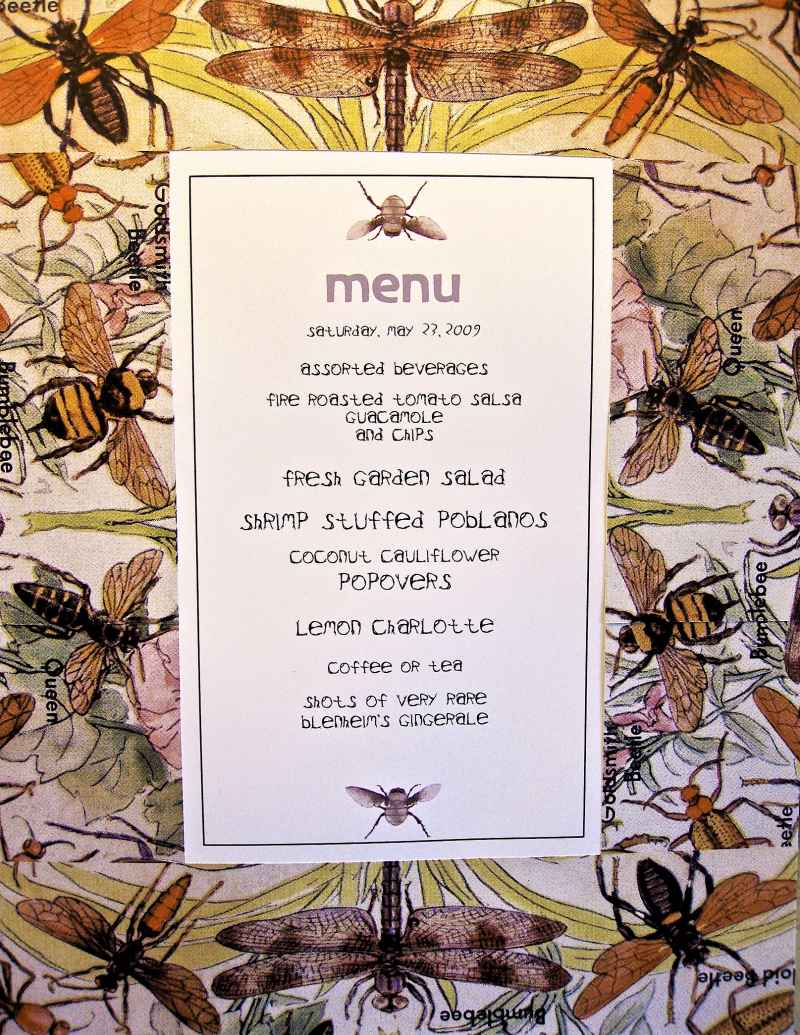 Beetle
Goldsmith
Beetle
Bumblebee
Queen
menu
saturday, may 23, 2009
assorted beverages
fire roasted tomato salsa
guacamole
and chips
fresh garden salad
shrimp stuffed poblanos
coconut cauliflower
popovers
lemon charlotte
coffee or tea
shots of very rare
blenheim's gingerale
Queen
Bumblebee
Goldsmith
Beetle
eetle
oid Beetle
Bumblebee